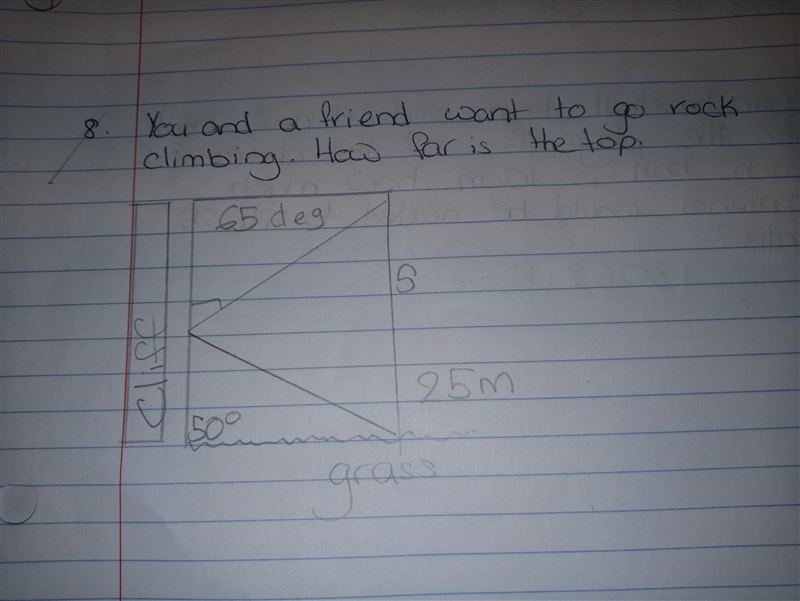 8. You and a friend want to go rock
climbing. How far is the top.
65 deg
S
Cliff
25m
50°
grass